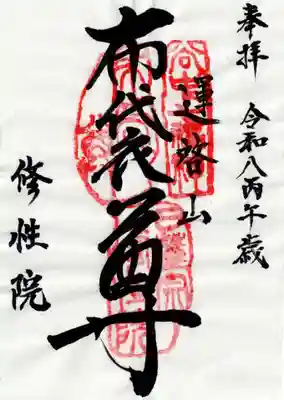 奉拝 令和八丙午歳
運啓山
布袋尊
修性院